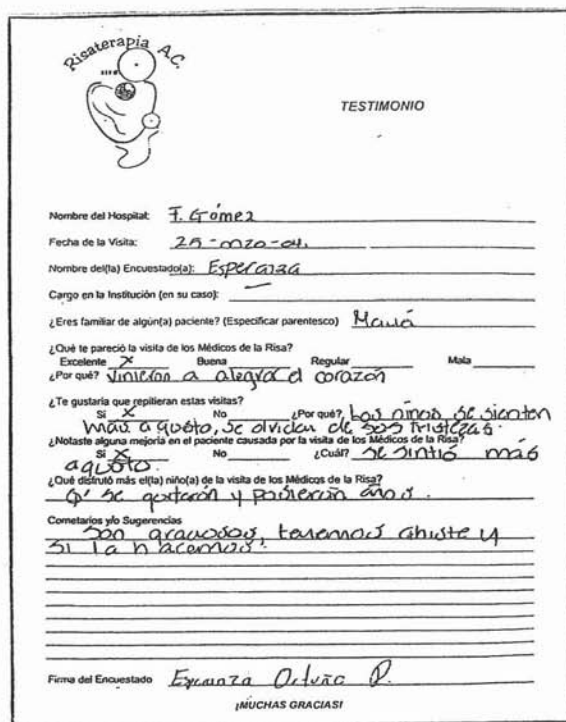 Risaterapia A.C.
TESTIMONIO
Nombre del Hospital: F. Gómez
Fecha de la Visita: 25-mzo-04.
Nombre del(la) Encuestado(a): Esperanza
Cargo en la Institución (en su caso):
¿Eres familiar de algún(a) paciente? (Especificar parentesco) Mamá
¿Qué te pareció la visita de los Médicos de la Risa?
Excelente X Buena Regular Mala
¿Por qué? vinieron a alegrar el corazón
¿Te gustaria que repitieran estas visitas?
Si X No ¿Por qué? Los niños se sienten
mas agusto, se olvidan de sus tristezas.
¿Notaste alguna mejoría en el paciente causada por la visita de los Médicos de la Risa?
Si X No ¿Cuál? se sintió más
agusto.
¿Qué disfrutó más el(la) niño(a) de la visita de los Médicos de la Risa?
Q' se y
Cometarios y/o Sugerencias
Son graciosos, tenemos chiste y
si la hacemos.
Firma del Encuestado Esperanza Ortuño P.
¡MUCHAS GRACIAS!